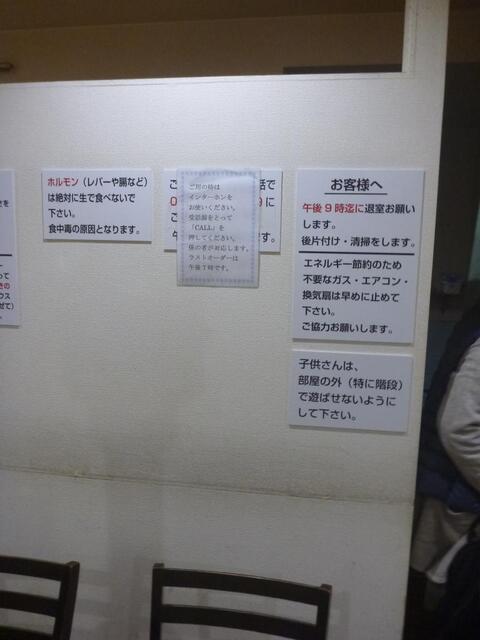 ホルモン（レバーや腸など）
は絶対に生で食べないで
下さい。
食中毒の原因となります。
ご用の時は
インターホンを
お使いください。
受話器をとって
「CALL」を
押してください。
係の者が対応します。
ラストオーダーは
午後７時です。
お客様へ
午後９時迄に退室お願い
します。
後片付け・清掃をします。
エネルギー節約のため
不要なガス・エアコン・
換気扇は早めに止めて
下さい。
ご協力お願いします。
子供さんは、
部屋の外（特に階段）
で遊ばせないように
して下さい。